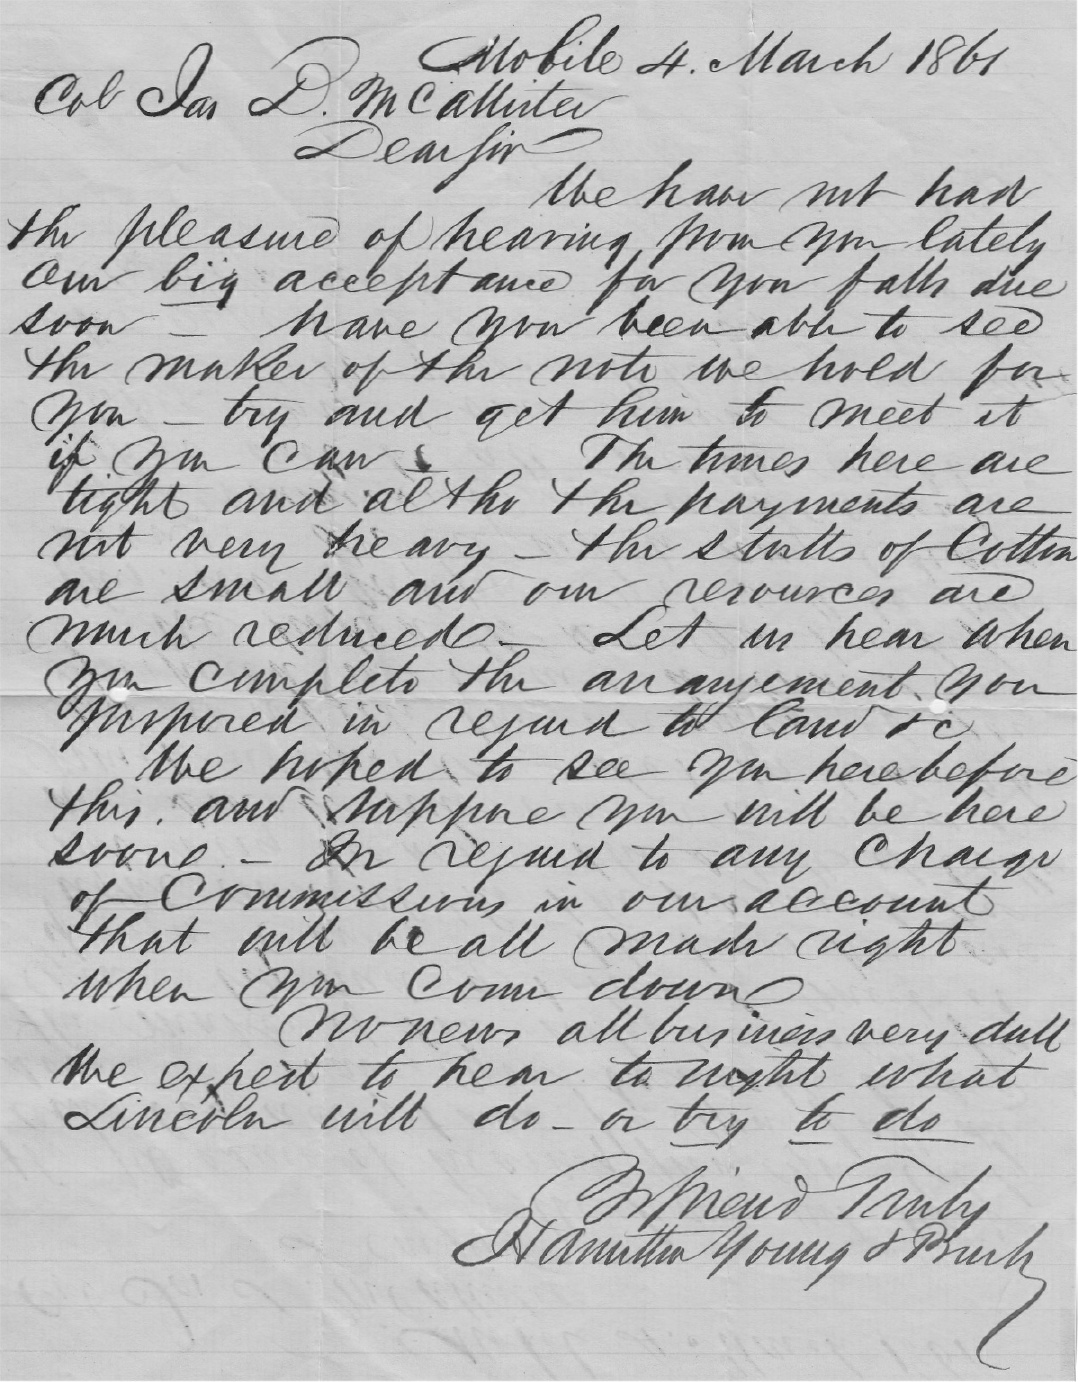 Mobile 4. March 1861
Col Jas D. McCallister
Dear sir
We have not had
the pleasure of hearing from you lately
our big acceptance for you falls due
soon – have you been able to see
the maker of the note we hold for
you – try and get him to meet it
if you can – The times here are
tight and altho the payments are
not very heavy – the stocks of Cotton
are small and our resources are
much reduced – Let us hear when
you complete the arrangement you
proposed in regard to land &c
We hoped to see you here before
this. and suppose you will be here
soon – In regard to any charge
of Commissions in our account
that will be all made right
when you come down
No news all business very dull
We expect to hear to night what
Lincoln will do – or try to do
Yr friend Truly
Hamilton Young &